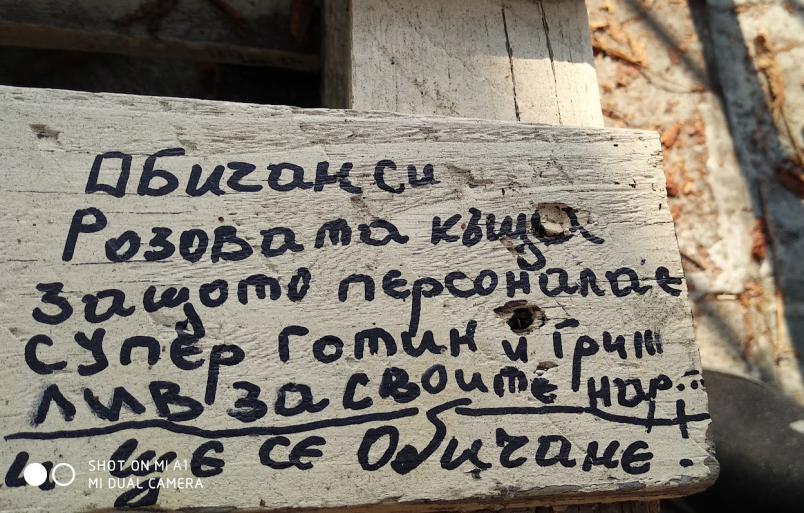 Обичан си
Розовата къща
Защото персонала е
супер готин и Гриж
лив за своите нар..
и ще се Обичаме.
SHOT ON MI A1
MI DUAL CAMERA